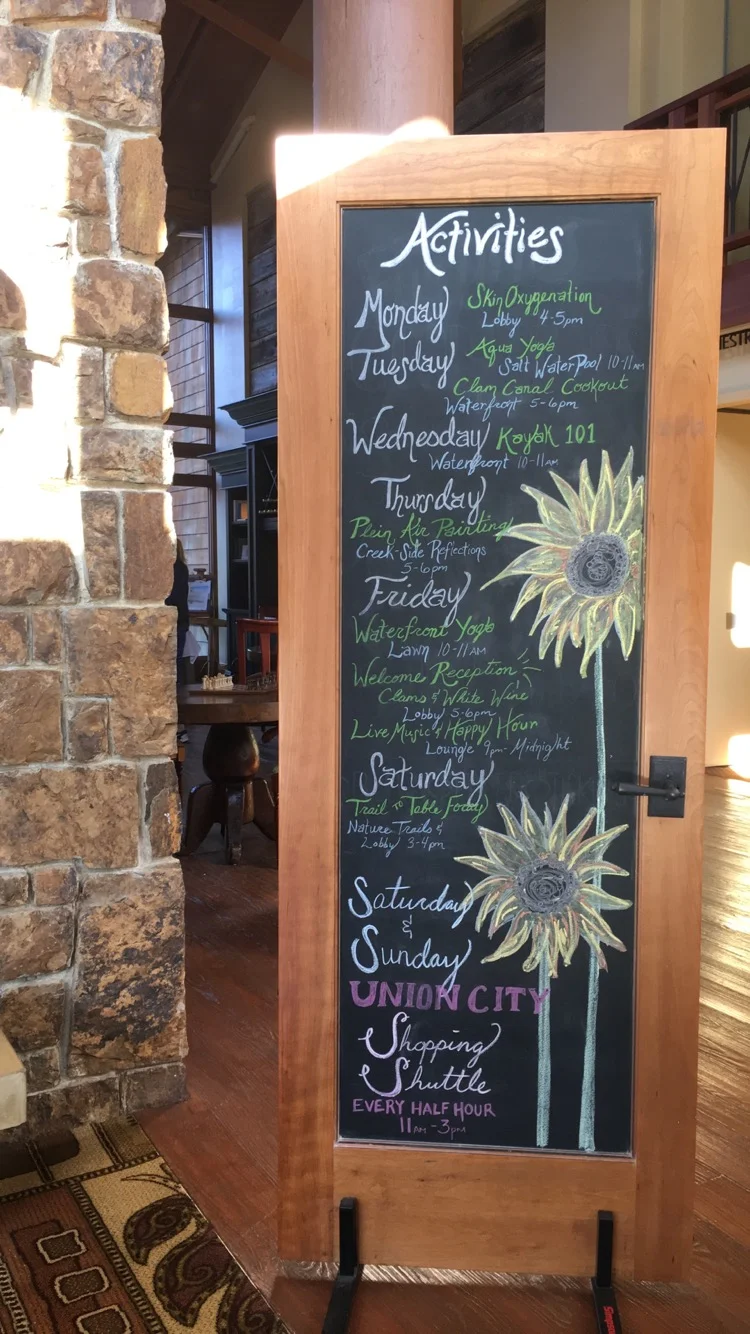 Activities
Monday Skin Oxygenation
Lobby 4-5pm
Tuesday Aqua Yoga
Salt Water Pool 10-11am
Clam Canal Cookout
Waterfront 5-6pm
Wednesday Kayak 101
Waterfront 10-11AM
Thursday
Plein Air Painting
Creek-Side Reflections
5-6pm
Friday
Waterfront Yoga
Lawn 10-11AM
Welcome Reception
Clams & White Wine
Lobby 5-6pm
Live Music & Happy Hour
Lounge 9pm-Midnight
Saturday
Trail to Table Foray
Nature Trails &
Lobby 3-4pm
Saturday
&
Sunday
UNION CITY
Shopping
Shuttle
EVERY HALF HOUR
11AM-3PM